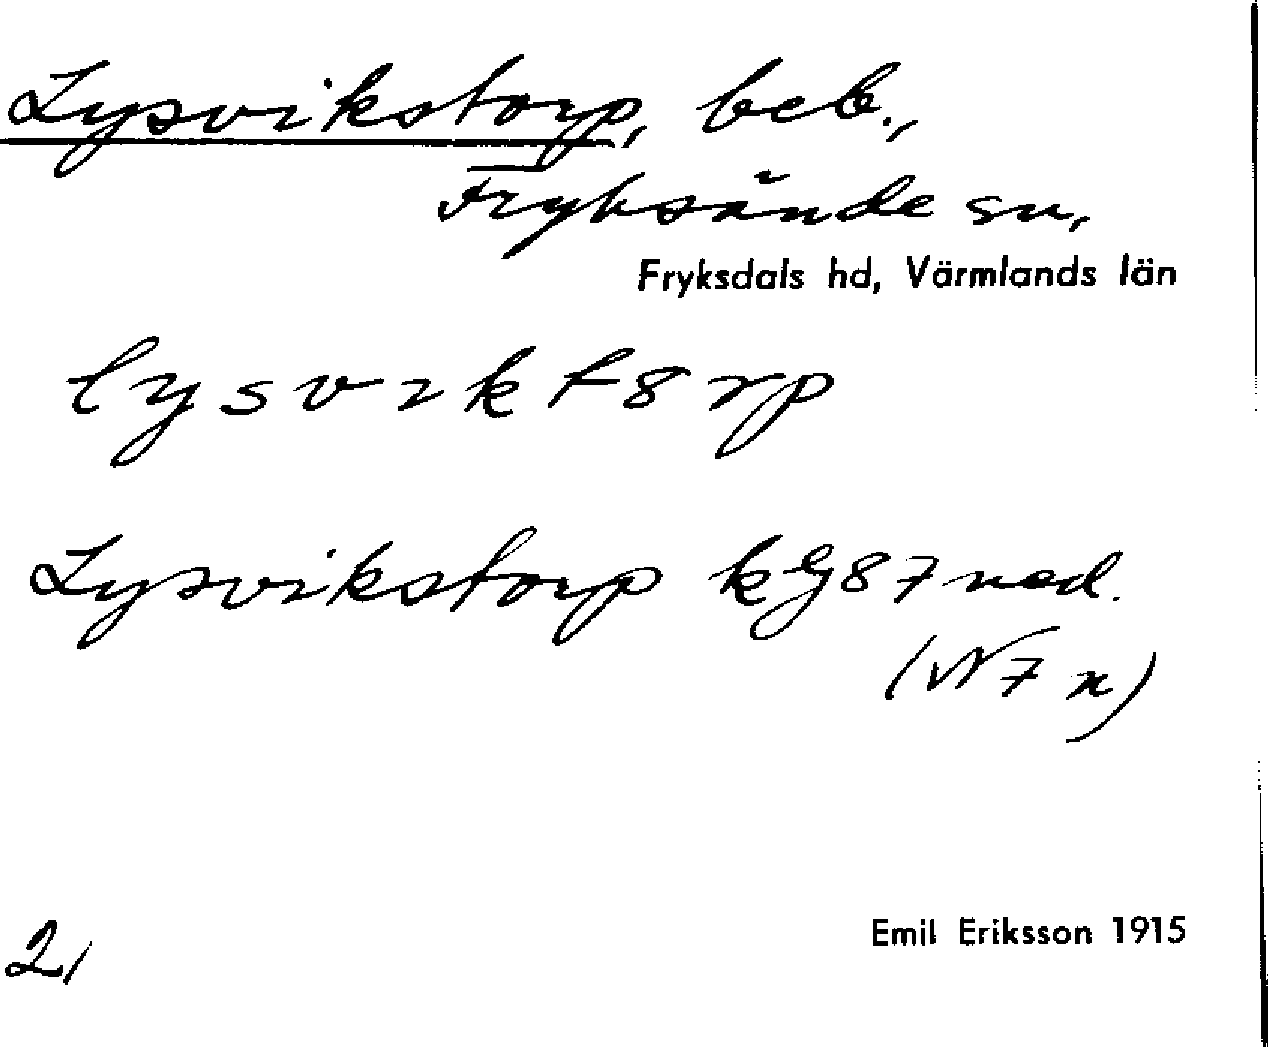 Lysvikstorp, beb.,
Fryksände sn,
Fryksdals hd, Värmlands län
lysvıkt8rp
Lysvikstorp kG87ned.
(N7n)
2,
Emil Eriksson 1915